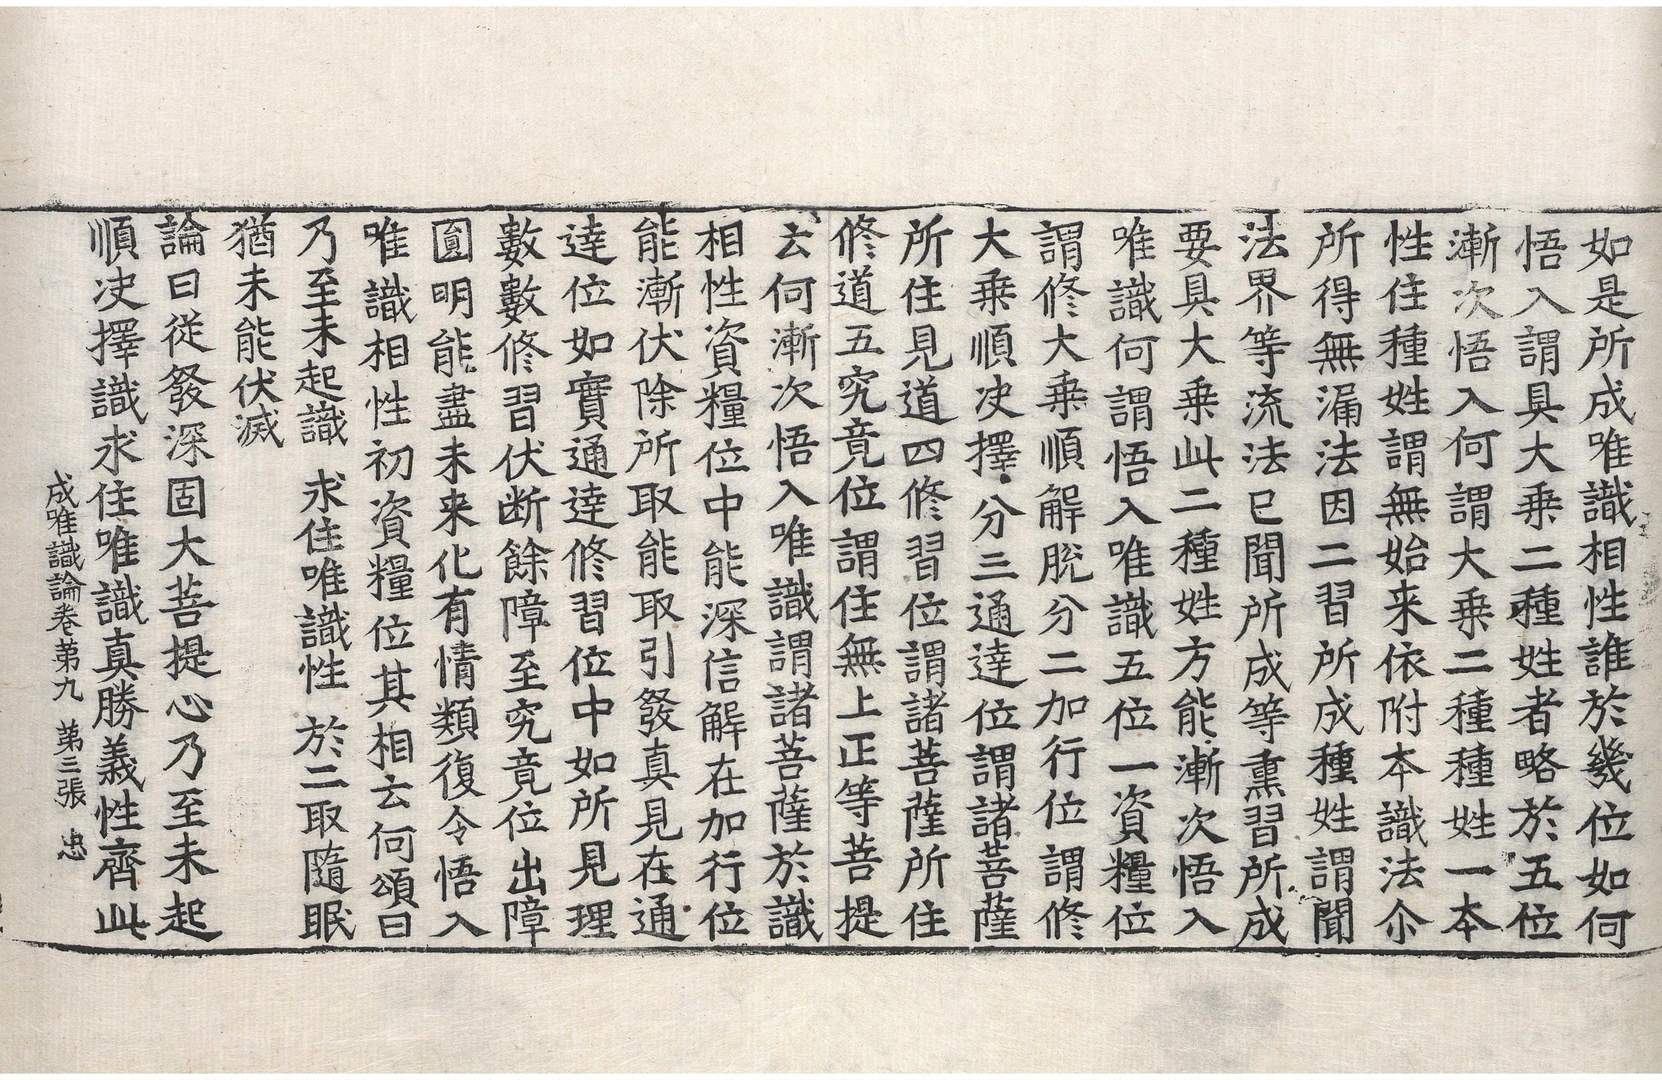 如是所成唯識相性誰於幾位如何
悟入謂具大乗二種姓者略於五位
漸次悟入何謂大乗二種種姓一本
性住種姓謂無始来依附本識法尒
所得無漏法因二習所成種姓謂聞
法界等流法已聞所成等熏習所成
要具大乗此二種姓方能漸次悟入
唯識何謂悟入唯識五位一資糧位
謂修大乗順解脫分二加行位謂修
大乗順决擇分三通達位謂諸菩薩
所住見道四修習位謂諸菩薩所住
修道五究竟位謂住無上正等菩提
云何漸次悟入唯識謂諸菩薩於識
相性資糧位中能深信解在加行位
能漸伏除所取能取引發真見在通
達位如實通達修習位中如所見理
數數修習伏断餘障至究竟位出障
圓明能盡未来化有情類復令悟入
唯識相性初資糧位其相云何頌曰
乃至未起識　求住唯識性　於二取隨眠
猶未能伏滅
論曰從發深固大菩提心乃至未起
順决擇識求住唯識真勝義性齊此
成唯識論卷第九　第三張　忠